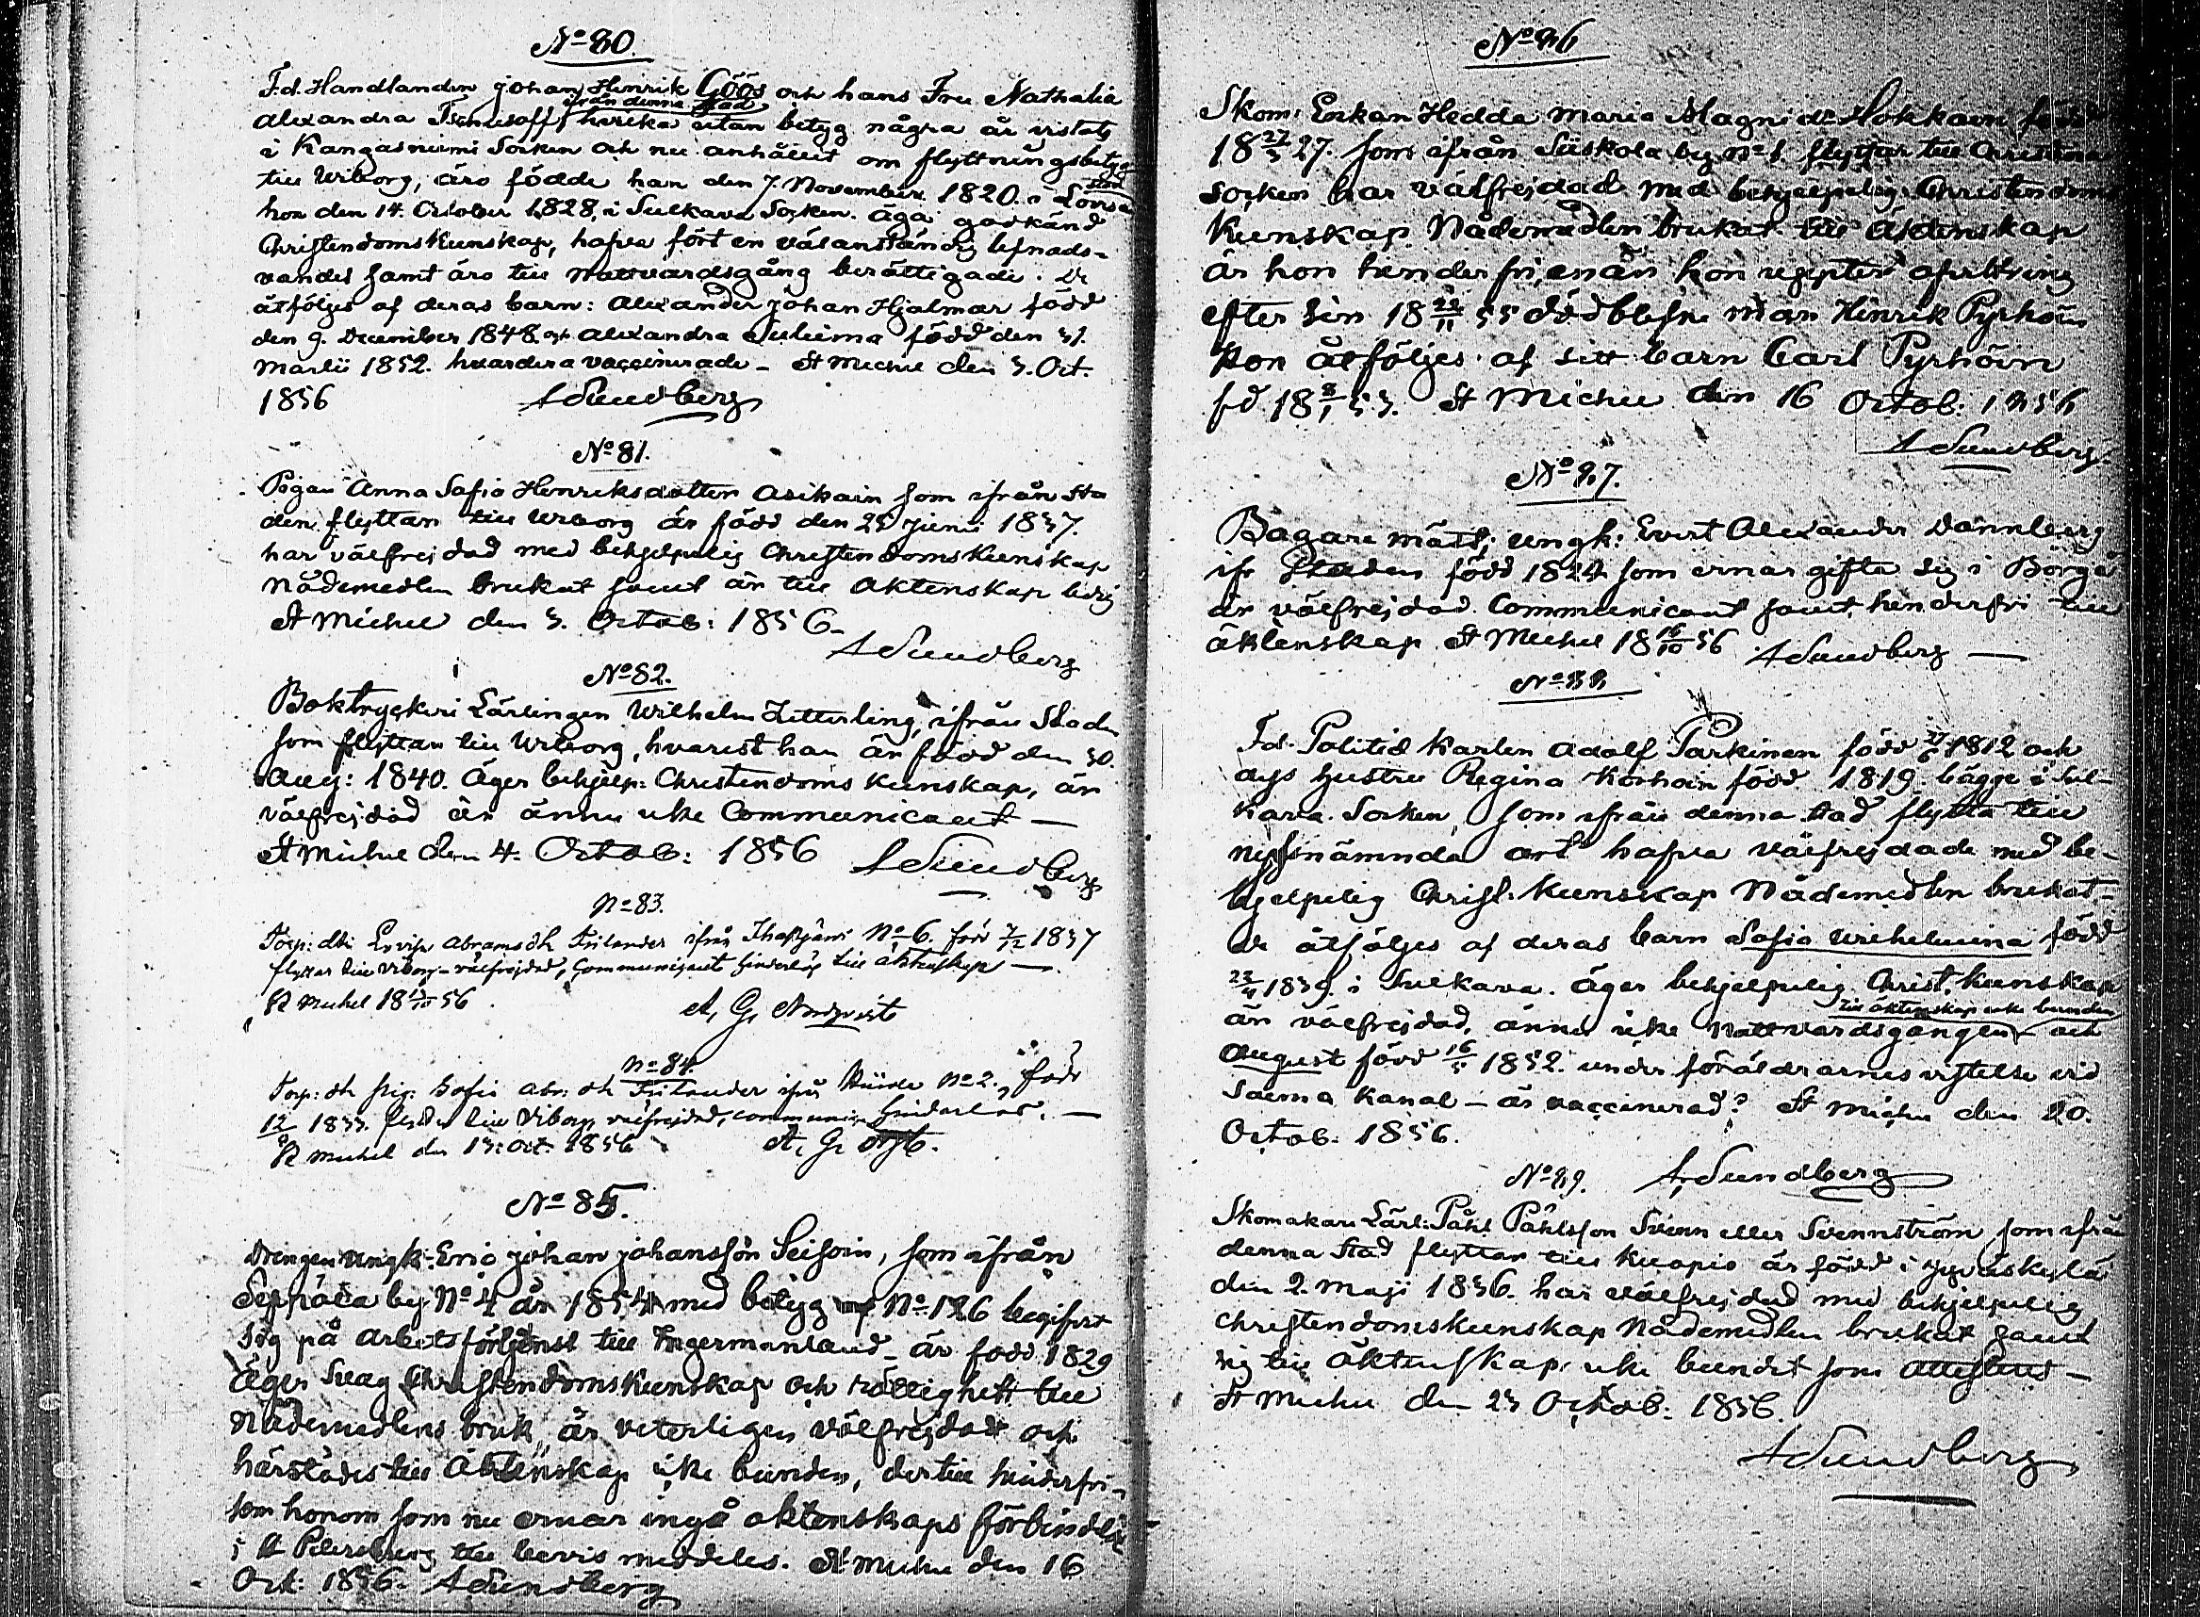 No 80.
F.d. Handlanden Johan Henrik Göös och hans Fru Nathalia
ifrån denna stad
Alexandra hvilka utan betyg några år vistats
i Kangasniemi Socken och nu anhållit om flyttningsbetyg
till Wiborg, äro födde han den 7. November 1820. i Lovisa
stad
hon den 14. October 1828, i Sulkava Socken. Äga godkänd
Christendomskunskap, hafva fört en välanständig lefnads-
vandel samt äro till nattvardsgång berättigade. De
åtföljes af deras barn: Alexander Johan Hjalmar född
den 9. December 1848. och Alexandra född den 31.
Martii 1852. hvardera vaccinerade - St Michel den 3. Oct.
1856 ASundberg
No 81.
Pigan Anna Safia Henriksdotter Asikain som ifrån Sta
den flyttar till Wiborg är född den 25 Junii 1837.
har välfrejdad med behjelpelig Christendomskunskap
Nådemedlen brukat samt är till Äktenskap ledig
St Michel den 3. Octob: 1856-
ASundberg
No 82.
Boktryckeri Lärlingen Wilhelm Zitterling, ifrån Staden
som flyttar till Wiborg, hvarest han är född den 30.
Aug: 1840. Äger behjelp: Christendoms kunskap, är
välfrejdad är ännu icke Communicant —
St Michel den 4. Octob: 1856 ASundberg
No 83.
Torp: dtr Abramsdtr Frilander ifrån No 6. född 7/12 1837
flyttar till Viborg - välfrejdad, Communicant hinderlös till äktenskap —
St Michel 18 13/10 56 A. G. Nordqvist
No 84.
Torp: dtr pig: Sofia Abr: dtr Frilander ifrån No 2. född
12/9 1833. flyttar till Viborg välfrejdad, communic. hinderlös. —
St Michel den 13: Oct. 1856 A. G.
No 85.
Drengen Ungk: Eric Johan Johansson Seisoin, som ifrån
by No 4 år 1854 med betyg No 126 begifvit
sig på arbetsförtjenst till Ingermanland - är född 1829
Äger svag Christendomskunskap och rättighet till
Nådemedlens bruk, är veterligen välfrejdad och
härstädes till Äktenskap icke bunden, dertill hinderfri-
som honom som nu ernar ingå äktenskaps förbindelse
i St Petersburg till bevis meddeles. St Michel den 16
Oct: 1856. ASundberg
No 86
Skom: Enkan Hedda Maria Magni dr Hokkain född
18 27/3 27. som ifrån Siiskola by No 1 flyttar till Christina
Socken har välfrejdad med behjelpelig Christendoms
Kunskap Nådemedlen brukat till Äktenskap
är hon hinderfri, enär hon afvittring
efter sin 18 22/11 55 dödblefne man Hinrik Pyrhöin
Hon åtföljes af sitt barn Carl Pyrhöin
fd 18 8/1 53. St Michel den 16 Octob: 1856
ASundberg.
No 87.
Bagare mäst: ungk: Evert Alexander Dannberg
ifr Staden född 1824 som ernar gifta sig i Borgå
är välfrejdad Communicant samt hinderfri till
äktenskap St Michel 18 16/10 56 ASundberg —
No 88
Fd. Politie Karlen Adolf Parkinen född 27/6 1812 och
dess hustru Regina Korhoin född 1819. bägge i Sul-
kava Socken, som ifrån denna stad flytta till
nyssnämnda ort hafva välfrejdade med be-
hjelpelig Christ: kunskap Nådemedlen brukat-
de åtföljes af deras barn Safia Wilhelmina född
23/4 1839. i Sulkava. äger behjelpelig Christ. kunskap
till äktenskap icke bunden
är välfrejdad, ännu icke Nattvardsgången och
August född 16/5 1852. under föräldrarnes vistelse vid
Saima Kanal - är vaccinerad? St Michel den 20.
Octob. 1856.
No 89. ASundberg
Skomakare Lärl: Påhl Påhlsson Svenn eller Svennström som ifrån
denna Stad flyttar till Kuopio är född i Jyväskylä
den 2. Maji 1836. har välfrejdad med behjelpelig
Christendomskunskap Nådemedlen brukat samt
sig till Äktenskap icke bundit som attesteras -
St Michel den 23 Octob: 1856.
ASundberg